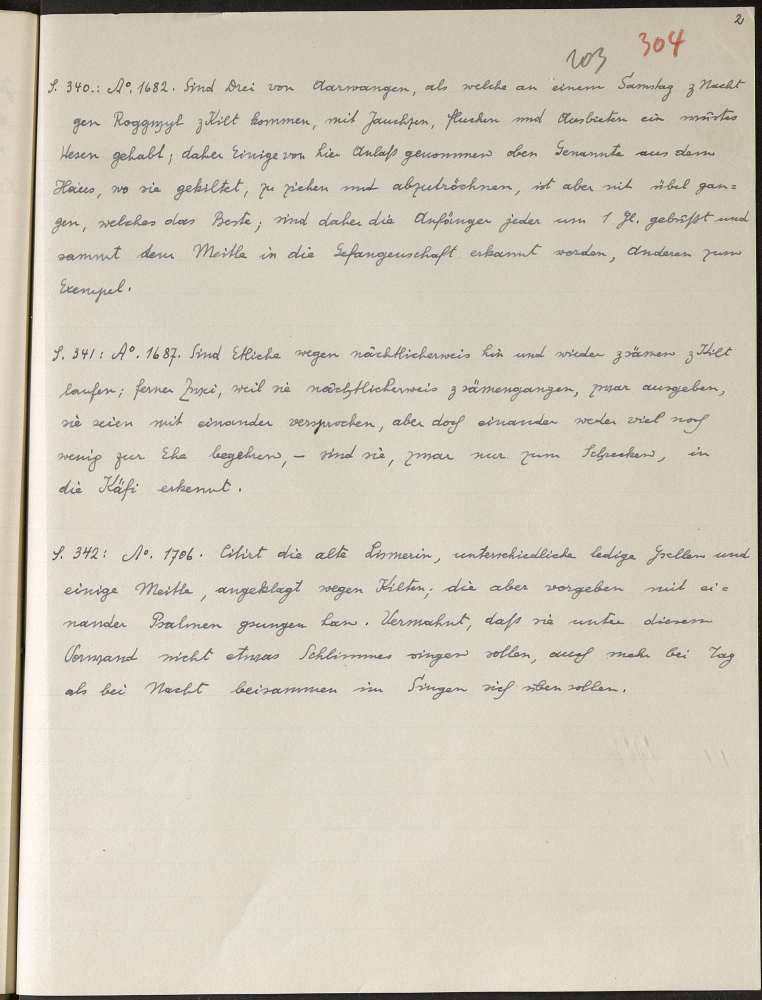 2
203 304
S. 340.: Aº. 1682. Sind Drei von Aarwangen, als welche an einem Samstag z Nacht
gen Roggwyl z Kilt kommen, mit Jauchzen, fluchen und Ausbieten ein wüstes
Wesen gehabt; daher Einige von hier Anlaß genommen oben Genannte aus dem
Haus, wo sie gekiltet, zu ziehen und abzutröchnen, ist aber nit übel gan=
gen, welches das Beste; sind daher die Anfänger jeder um 1 Gl. gebüßt und
sammt dem Meitle in die Gefangenschaft erkannt worden, Anderen zum
Exempel.
S. 341: Aº. 1687. Sind Etliche wegen nächtlicherweis hin und wieder zsämen z Kilt
laufen; ferner Zwei, weil sie nächtlicherweis zsämengangen, zwar ausgeben,
sie seien mit einander versprochen, aber doch einander weder viel noch
wenig zur Ehe begehren, – sind sie, zwar nur zum Schrecken, in
die Käfi erkennt.
S. 342: Aº. 1706. Citirt die alte Lismerin, unterschiedliche ledige Gsellen und
einige Meitle, angeklagt wegen Kilten; die aber vorgeben mit ei=
nander Psalmen gsungen han. Vermahnt, daß sie unter diesem
Vorwand nicht etwas Schlimmes singen sollen, auch mehr bei Tag
als bei Nacht beisammen im Singen sich üben sollen.